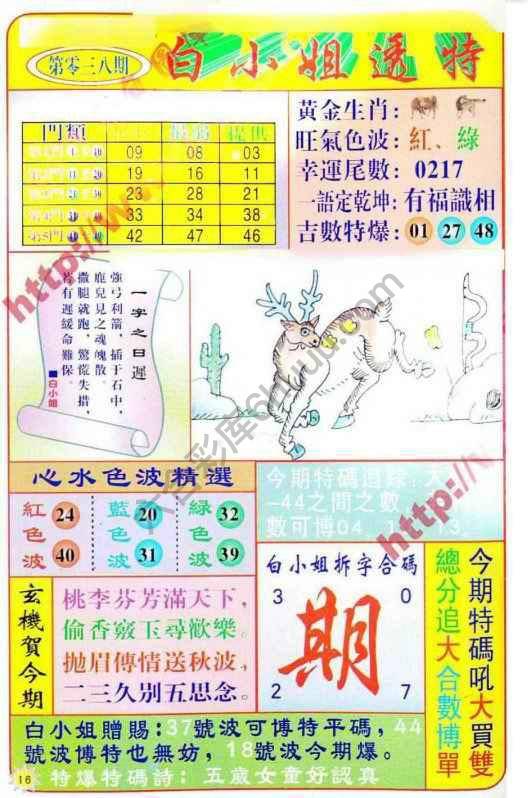 第零三八期
白小姐透特
門類
提供
09 08 03
19 16 11
23 28 21
33 34 38
42 47 46
黃金生肖:
旺氣色波:紅、綠
幸運尾數:0217
一語定乾坤:有福識相
吉數特爆:01 27 48
一字之曰遲
強弓利箭,插于石中,
鹿兒見之魂魄散。
撒腿就跑,驚慌失措,
若有遲緩命難保。
■白小姐
心水色波精選
紅色波 24 40
藍色波 20 31
綠色波 32 39
今期特碼追蹤:大
-44之間之數
數可博04、1 13
玄機賀今期
桃李芬芳滿天下,
偷香竅玉尋歡樂。
拋眉傳情送秋波,
二三久別五思念。
白小姐拆字合碼
3 0
期
2 7
今期特碼吼大買雙
總分追大合數博單
白小姐贈賜:37號波可博特平碼,44
號波博特也無妨,18號波今期爆。
特爆特碼詩:五歲女童好認真
16
http://w
http://w
六合彩库6huuu.com